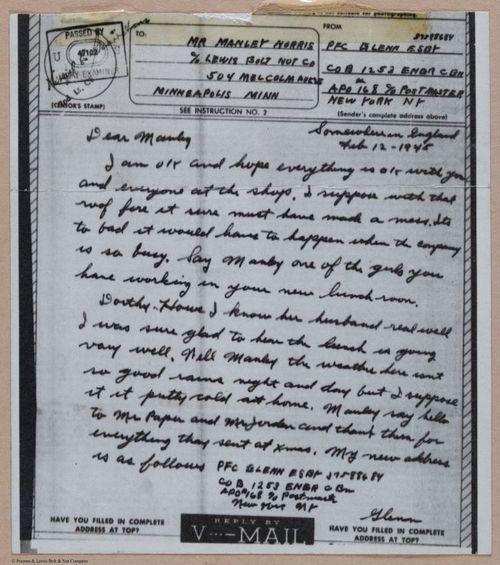 PASSED BY
U
47102
ARMY EXAMINER
(CENSOR'S STAMP)
TO:
MR MANLEY NORRIS
% LEWIS BOLT NUT CO
504 MELCOLM AVE SE
MINNEAPOLIS MINN
SEE INSTRUCTION NO. 2
FROM
37588684
PFC GLENN ESBY
CO B 1253 ENGR C BN
APO 168 % POSTMASTER
NEW YORK NY
(Sender's complete address above)
Somewhere in England
Feb 12 - 1945
Dear Manley
I am ok and hope everything is ok with you
and everyone at the shop. I suppose with that
roof fire it sure must have made a mess. Its
to bad it would have to happen when the company
is so busy. Say Manley one of the girls you
have working in your new lunch room.
Dorthy. Howe I know her husband real well
I was sure glad to hear the lunch is going
vary well. Well Manley the weather here isnt
so good rains night and day but I suppose
it it pretty cold at home. Manley say hello
to Mr Paper and Mr Jorden and thank them for
everything they sent at xmas. My new address
is as follows PFC GLENN ESBY 37588684
CO B 1253 ENGR C Bn
APO 168 % Postmast
New York NY
Glenn
HAVE YOU FILLED IN COMPLETE
ADDRESS AT TOP?
REPLY BY
V···–MAIL
HAVE YOU FILLED IN COMPLETE
ADDRESS AT TOP?
Lewis Bolt & Nut Company